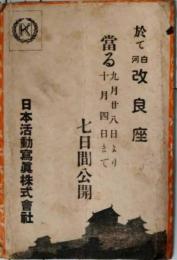 於て白河改良座
當る九月廿八日より
十月四日まで
七日間公開
日本活動寫眞株式會社